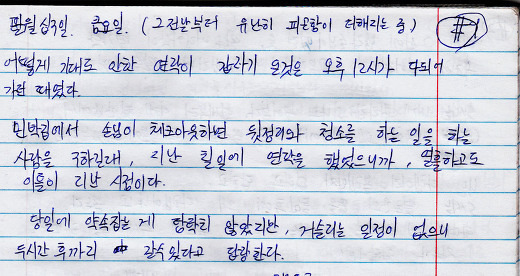 팔월 십구일. 금요일. (그전날부터 유난히 피곤함이 더해지는 중) #1
어떻게 기대도 안한 연락이 갑자기 온것은 오후 12시가 다되어
가던 때였다.
민박집에서 손님이 체크아웃하면 뒷정리와 청소를 하는 일을 하는
사람을 구하길래, 지난 칠일에 연락을 했었으니까, 열흘하고도
이틀이 지난 시점이다.
당일에 약속잡는 게 탐탁치 않았지만, 거슬리는 일정이 없으니
두시간 후까지 갈수있다고